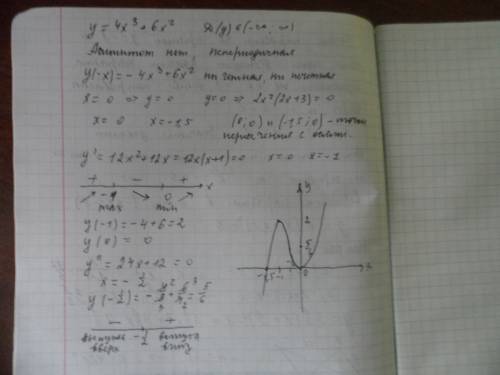 y = 4x³ + 6x² D(y) ∈ (-∞; ∞)
Асимптот нет, непериодичная
y(-x) = -4x³ + 6x² ни четная, ни нечетная
x = 0 => y = 0 y = 0 => 2x²(2x+3) = 0
x = 0 x = -1,5 (0;0) и (-1,5;0) - точки
пересечения с осями.
y' = 12x² + 12x = 12x(x+1) = 0 x = 0 x = -1
+ - +
-1 0 x
max min
y(-1) = -4+6 = 2
y(0) = 0
y'' = 24x + 12 = 0
x = -1/2
- +
выпукла -1/2 выпукла
вверх вниз
y
2
-1,5 -1 0 x